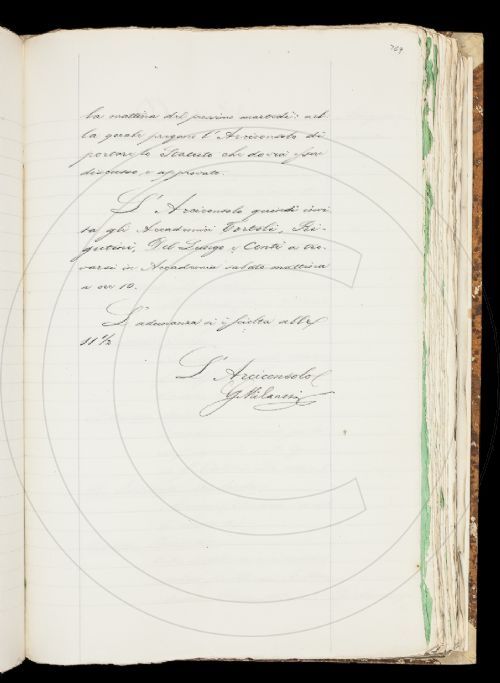 769
la mattina del prossimo martedì: nel
la quale pregano l'Arciconsolo di
portare lo Statuto che dovrà esser
discusso e approvato.
L'Arciconsolo quindi invi
ta gli Accademici Tortoli, Ri-
gutini, Del Lungo e Conti a tro-
varsi in Accademia sabato mattina
a ore 10.
L'adunanza si è sciolta alle
11 1/2
L'Arciconsolo
G. Milanesi